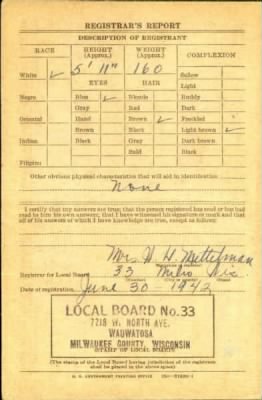 REGISTRAR'S REPORT
DESCRIPTION OF REGISTRANT
RACE HEIGHT (Approx.) WEIGHT (Approx.) COMPLEXION
White ✓ 5' 11" 160 Sallow
EYES HAIR Light
Negro Blue ✓ Blonde Ruddy
Gray Red Dark
Oriental Hazel Brown ✓ Freckled
Brown Black Light brown ✓
Indian Black Gray Dark brown
Bald Black
Filipino
Other obvious physical characteristics that will aid in identification
None
I certify that my answers are true; that the person registered has read or has had
read to him his own answers; that I have witnessed his signature or mark and that
all of his answers of which I have knowledge are true, except as follows:
Mrs. H. H.
Registrar for Local Board 33 Milw. Wis.
Date of registration June 30 - 1942
LOCAL BOARD No. 33
7218 W. NORTH AVE.
WAUWATOSA
MILWAUKEE COUNTY, WISCONSIN
(STAMP OF LOCAL BOARD)
(The stamp of the Local Board having jurisdiction of the registrant
shall be placed in the above space)
U. S. GOVERNMENT PRINTING OFFICE